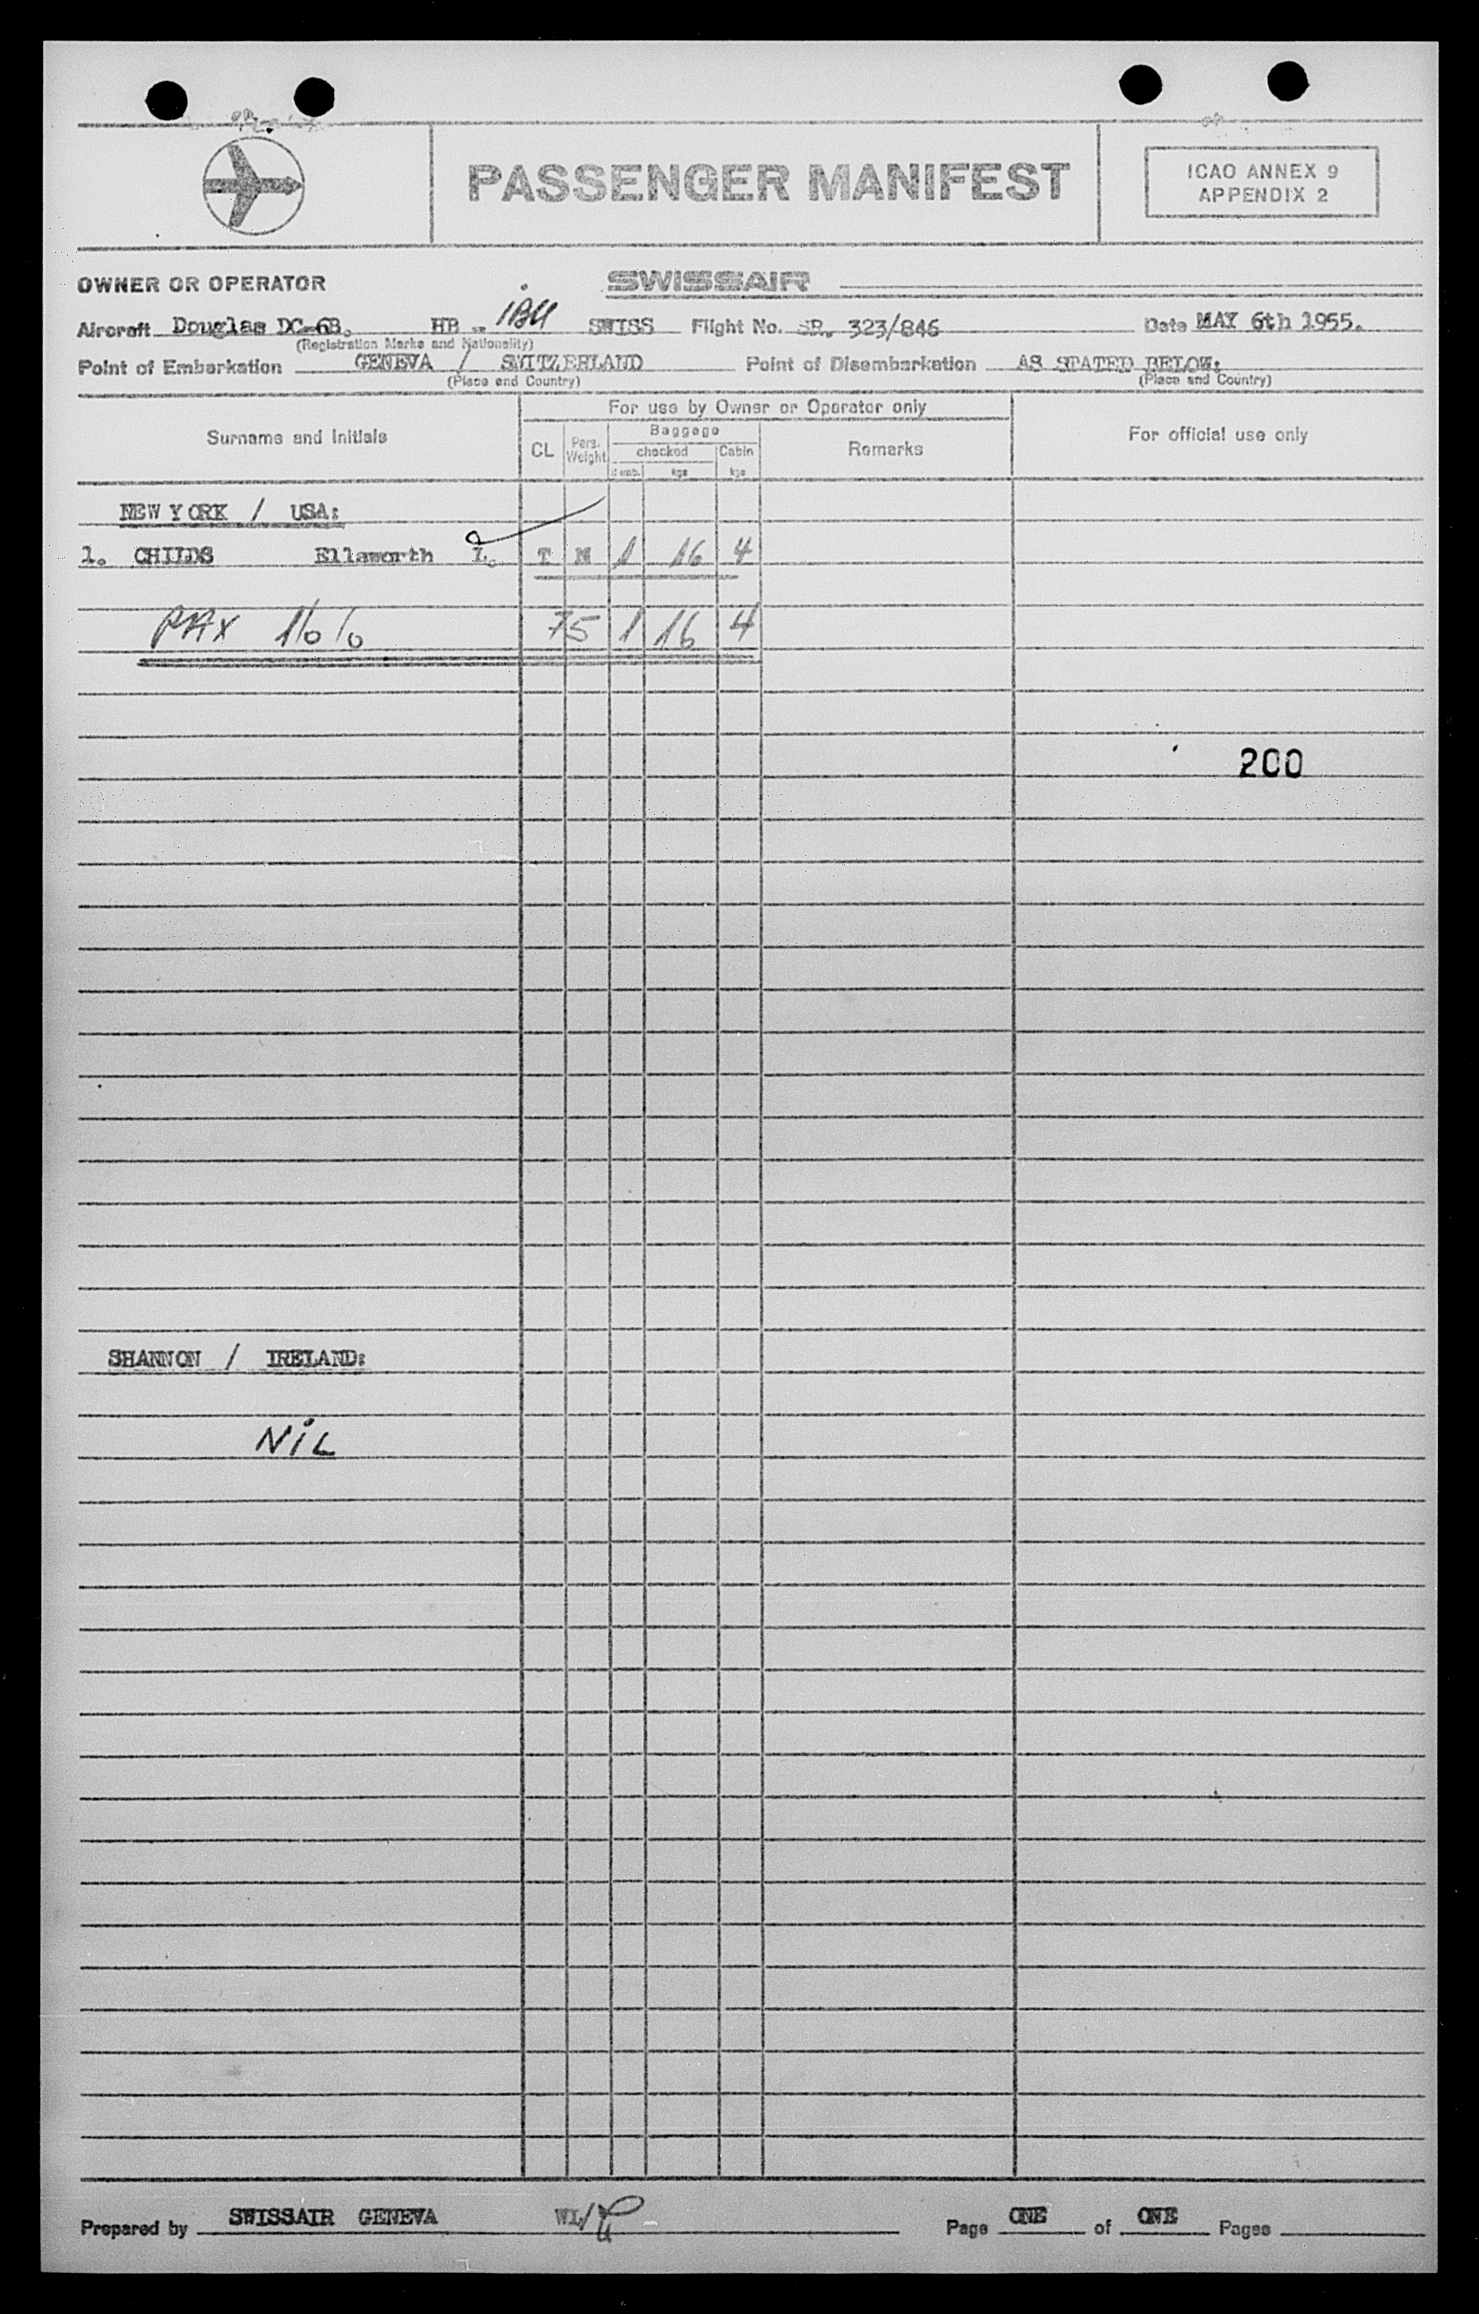 PASSENGER MANIFEST
ICAO ANNEX 9
APPENDIX 2
OWNER OR OPERATOR SWISSAIR
Aircraft Douglas DC-6B. HB - IBU SWISS Flight No. SR. 323/846 Date MAY 6th 1955.
(Registration Marks and Nationality)
Point of Embarkation GENEVA / SWITZERLAND Point of Disembarkation AS STATED BELOW:
(Place and Country) (Place and Country)
For use by Owner or Operator only
Surname and Initials CL Pers. Weight Baggage Remarks For official use only
checked Cabin
kgs kgs
NEW YORK / USA:
1. CHILDS Ellsworth L. T M 1 16 4
PAX 1/0/0 75 1 16 4
200
SHANNON / IRELAND:
NIL
Prepared by SWISSAIR GENEVA WL/ Page ONE of ONE Pages